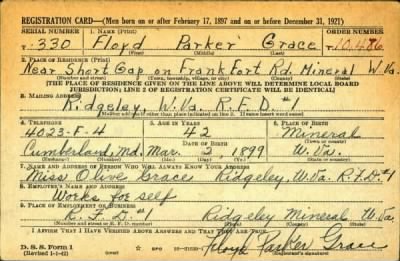 REGISTRATION CARD—(Men born on or after February 17, 1897 and on or before December 31, 1921)
SERIAL NUMBER 1. NAME (Print) ORDER NUMBER
T 330 Floyd Parker Grace 10,486
(First) (Middle) (Last)
2. PLACE OF RESIDENCE (Print)
Near Short Gap on Frank Fort Rd. Mineral W. Va.
(Number and street) (Town, township, village, or city) (County) (State)
[THE PLACE OF RESIDENCE GIVEN ON THE LINE ABOVE WILL DETERMINE LOCAL BOARD
JURISDICTION; LINE 2 OF REGISTRATION CERTIFICATE WILL BE IDENTICAL]
3. MAILING ADDRESS
Ridgeley, W. Va. R.F.D. #1
[Mailing address if other than place indicated on line 2. If same insert word same]
4. TELEPHONE 5. AGE IN YEARS 6. PLACE OF BIRTH
4023-F-4 42 Mineral
DATE OF BIRTH (Town or county)
Cumberland, Md. Mar. 3, 1899 W. Va.
(Exchange) (Number) (Mo.) (Day) (Yr.) (State or country)
7. NAME AND ADDRESS OF PERSON WHO WILL ALWAYS KNOW YOUR ADDRESS
Miss Olive Grace Ridgeley, W. Va. R.F.D. #1
8. EMPLOYER'S NAME AND ADDRESS
Works for self
9. PLACE OF EMPLOYMENT OR BUSINESS
R.F.D. #1 Ridgeley Mineral W. Va.
(Number and street or R. F. D. number) (Town) (County) (State)
I AFFIRM THAT I HAVE VERIFIED ABOVE ANSWERS AND THAT THEY ARE TRUE.
D. S. S. Form 1
(Revised 1-1-42) GPO Floyd Parker Grace
(Registrant's signature)